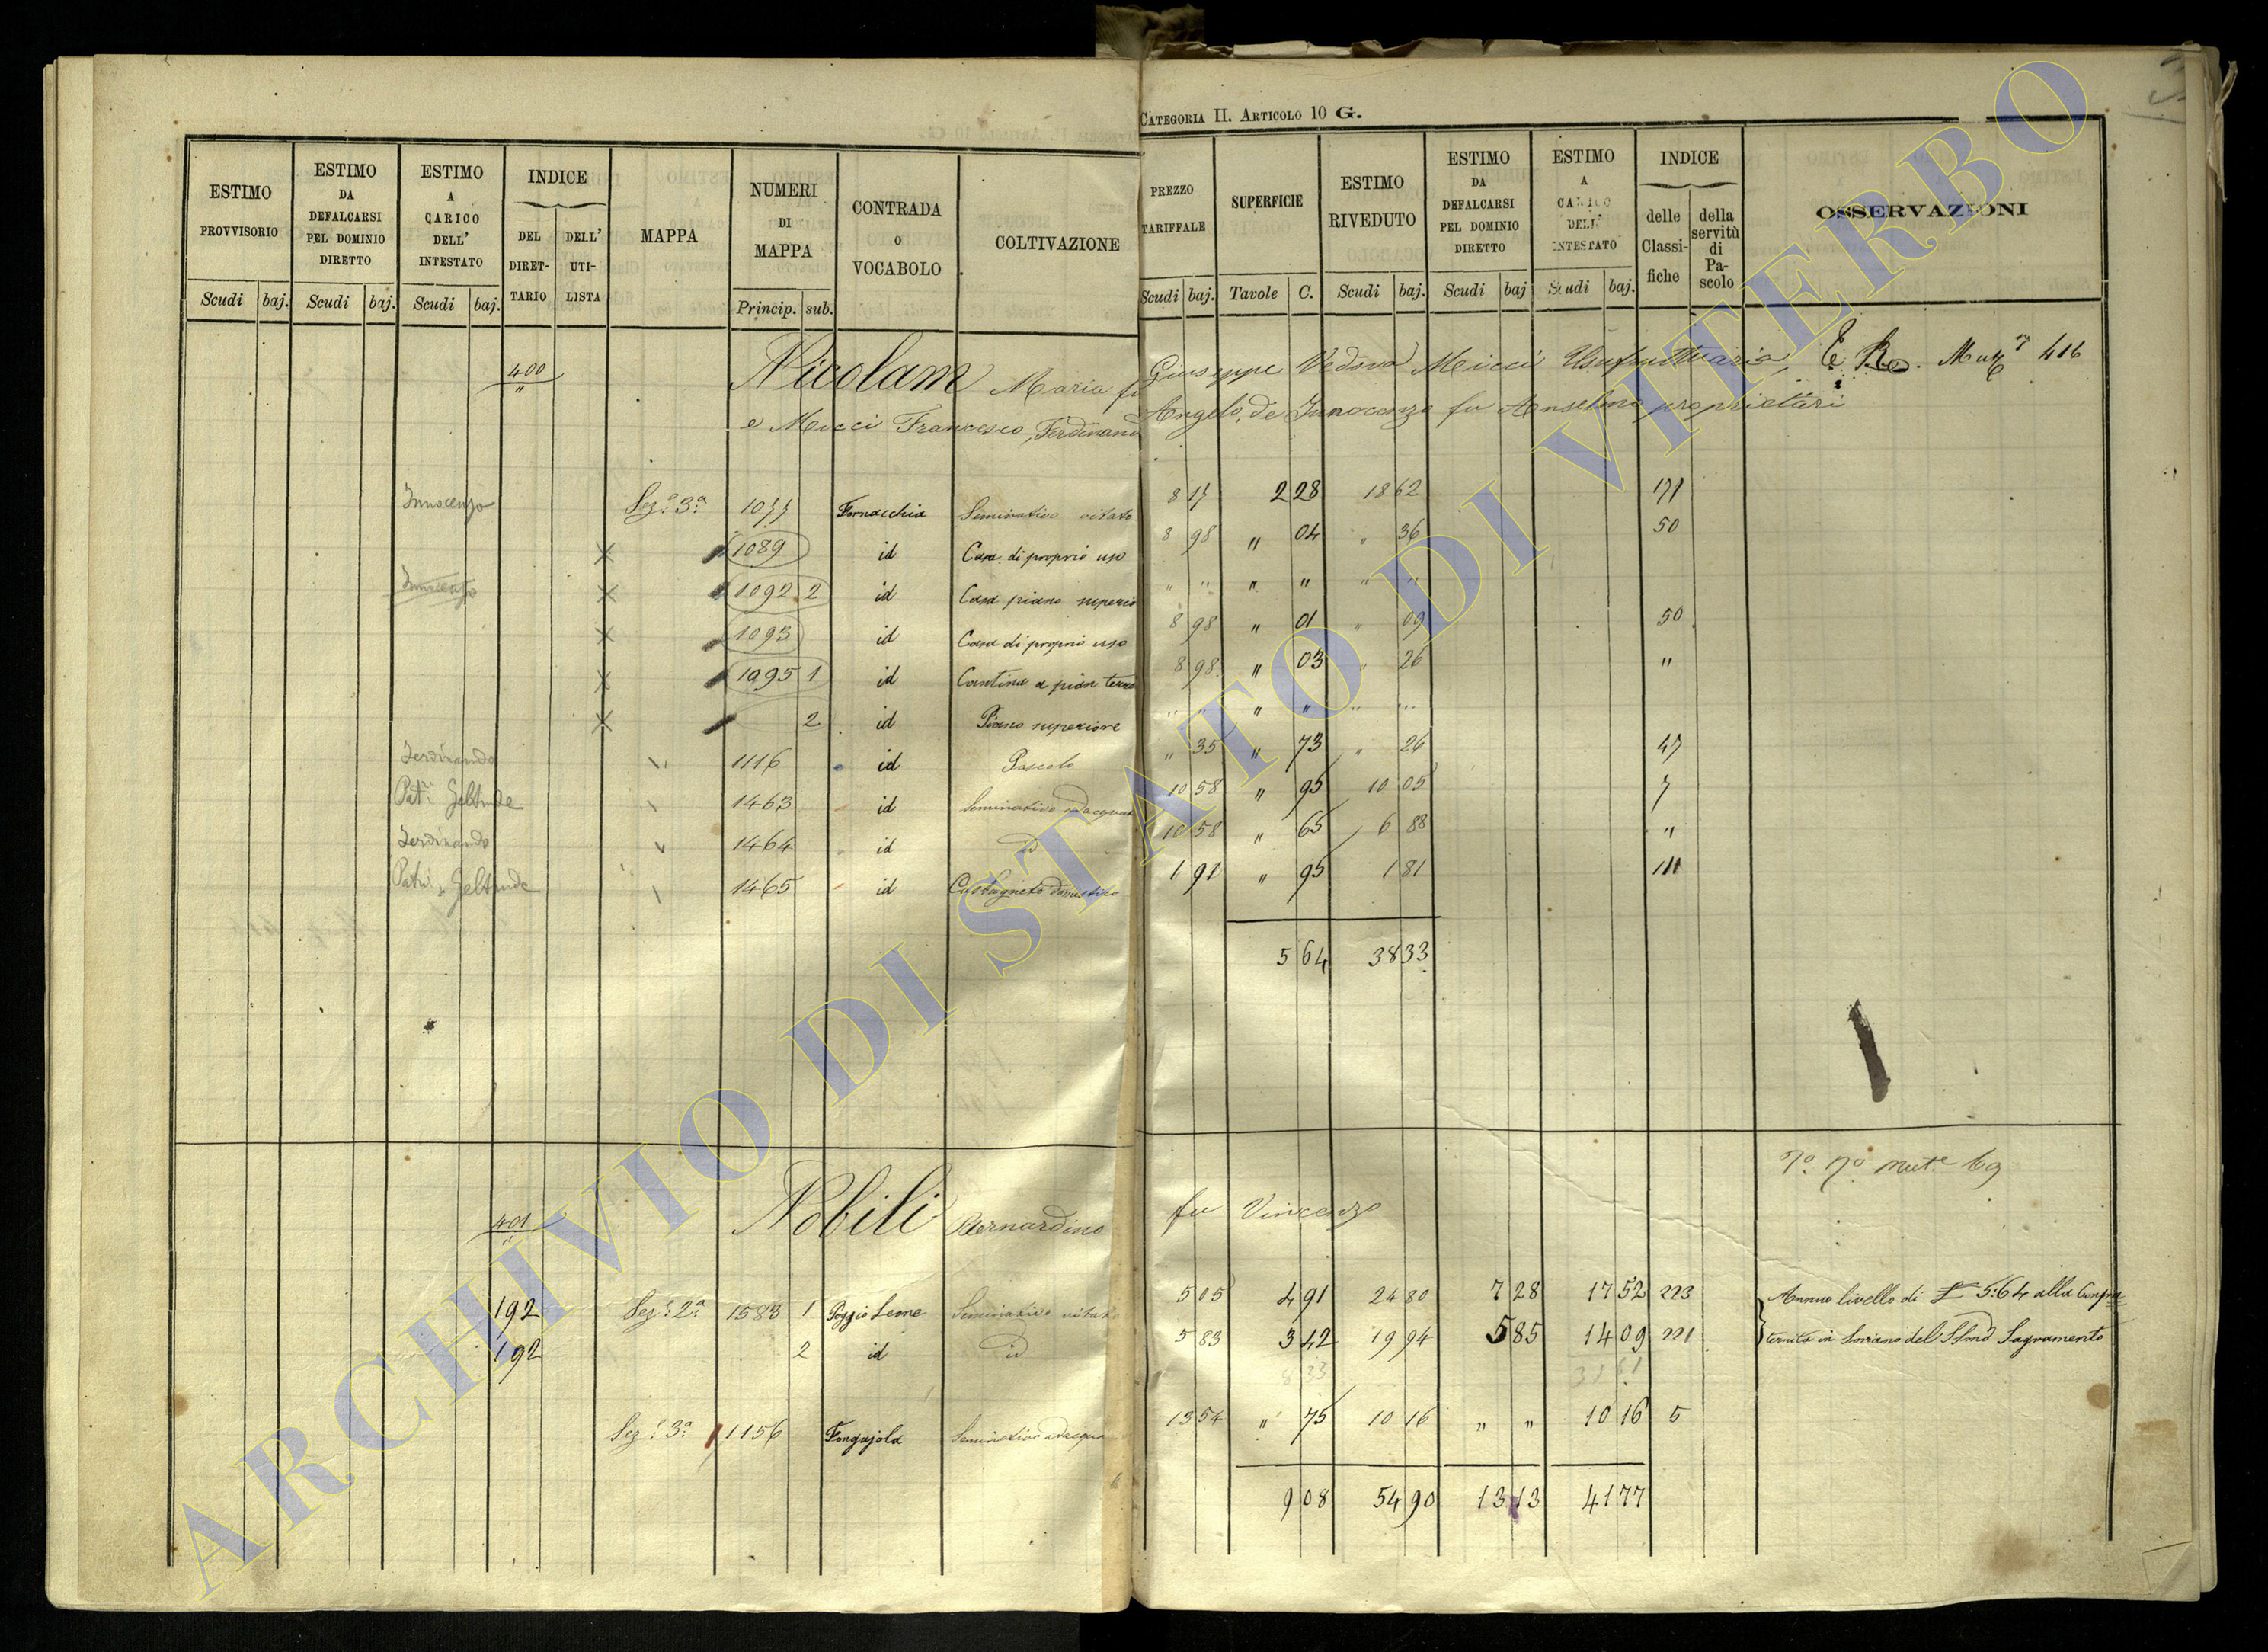 CATEGORIA II. ARTICOLO 10 G.
ESTIMO PROVVISORIO | ESTIMO DA DEFALCARSI PEL DOMINIO DIRETTO | ESTIMO A CARICO DELL' INTESTATO | INDICE DEL DIRETTARIO | DELL' UTILISTA | MAPPA | NUMERI DI MAPPA | CONTRADA O VOCABOLO | COLTIVAZIONE | PREZZO TARIFFALE | SUPERFICIE | ESTIMO RIVEDUTO | ESTIMO DA DEFALCARSI PEL DOMINIO DIRETTO | ESTIMO A CARICO DELL' INTESTATO | INDICE delle Classifiche | della servitù di Pascolo | OSSERVAZIONI
Scudi baj. Scudi baj. Scudi baj. Princip. sub. Scudi baj. Tavole C. Scudi baj. Scudi baj Scudi baj.
400 Nicolam Maria fu Giuseppe Vedova Micci Usufruttuaria,
e Micci Francesco, Ferdinand Angelo, de Innocenzo fu Anselmo proprietari
Innocenzo Sez.e 3a 1077 Fornacchia Seminativo vitato 8 17 2 28 18 62 171
1089 id Casa di proprio uso 8 98 " 04 " 36 50
Innocenzo 1092 2 id Casa piano superio " " " " " "
1093 id Casa di proprio uso 8 98 " 01 " 09 50
1095 1 id Cantina a pian terre 8 98 " 03 " 26 "
2 id Piano superiore " " " " " "
Ferdinando 1116 id Pascolo " 35 " 73 " 26 47
Geltrude 1463 id Seminativo adacquat 10 58 " 95 10 05 7
Ferdinando 1464 id id 10 58 " 65 6 88 "
Geltrude 1465 id Castagneto domestico 1 91 " 95 1 81 111
5 64 38 33
401 Nobili Bernardino fu Vincenzo
192 Sez.e 2a 1583 1 Poggio Leone Seminativo vitat 5 05 4 91 24 80 7 28 17 52 223 Annuo livello di £ 5.64 alla Confra
192 2 id id 5 83 3 42 19 94 5 85 14 09 221 ternita in Soriano del SSmo Sagramento
8 33 31 61
Sez.e 3a 1156 Fongajola Seminativo adacqua 13 54 " 75 10 16 " " 10 16 5
9 08 54 90 13 13 41 77
ARCHIVIO DI STATO DI VITERBO